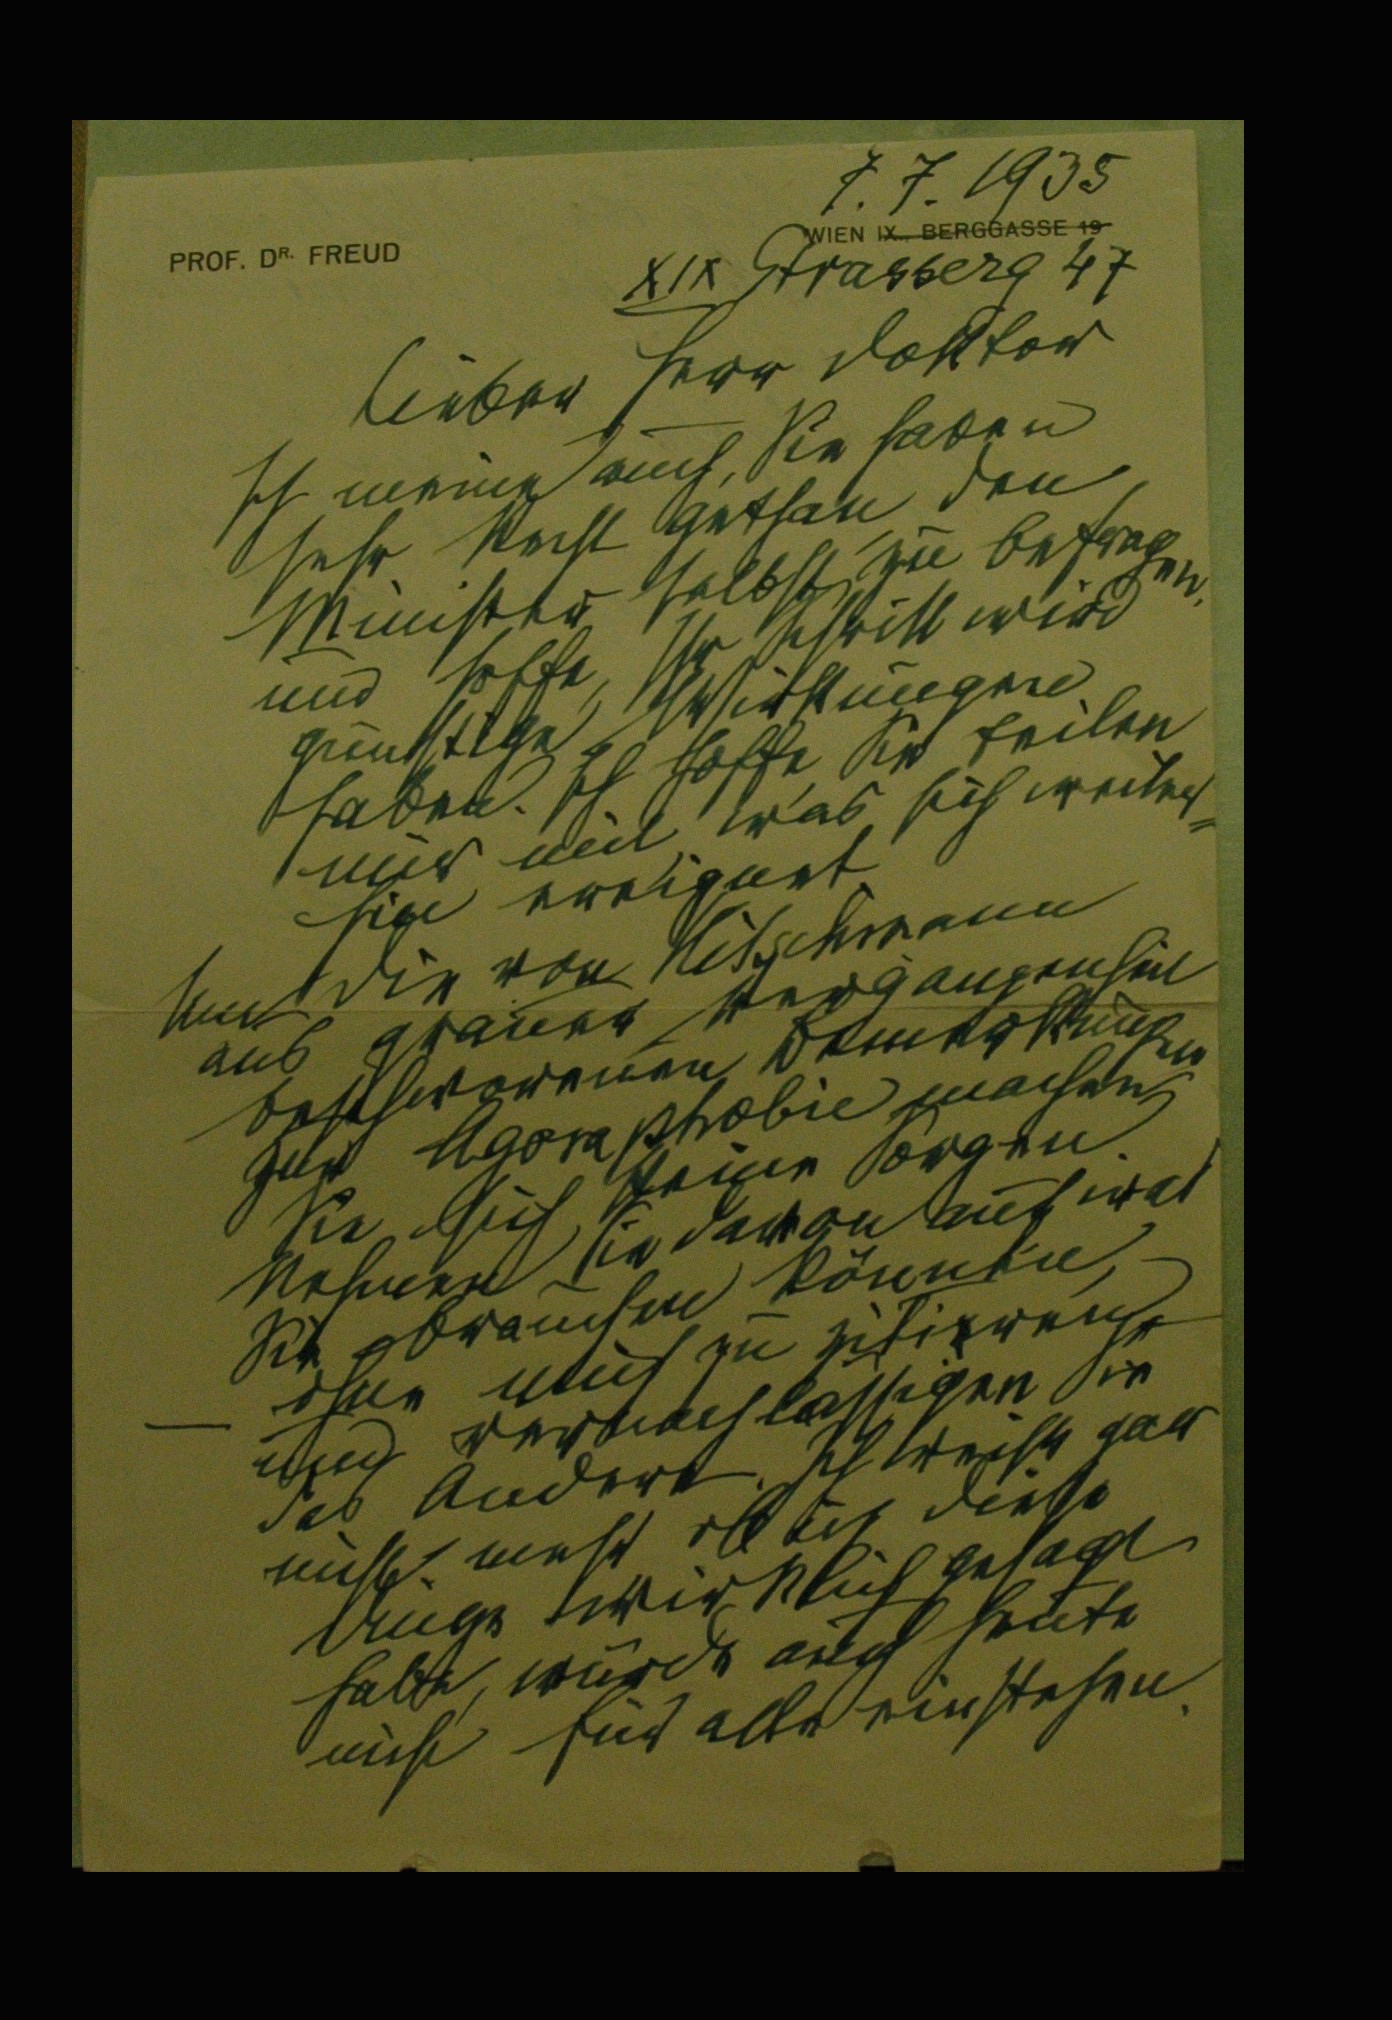 7. 7. 1935
PROF. DR. FREUD
WIEN IX., BERGGASSE 19
XIX Strasserg 47
Lieber Herr Doktor
Ich meine auch, Sie haben
sehr Recht gethan den
Minister selbst zu befragen,
und hoffe, Ihr Schritt wird
günstige Wirkungen
haben. Ich hoffe Sie teilen
mir mit was sich weiter=
hin ereignet.
Um die von Hitschmann
aus grauer Vergangenheit
beschworenen Bemerkungen
zur Agoraphobie machen
Sie sich keine Sorgen.
Nehmen Sie davon auf was
Sie brauchen können,
ohne mich zu zitieren
und vernachlässigen Sie
das Andere. Ich weiß gar
nicht mehr ob ich diese
Dinge wirklich gesagt
habe, würde auch heute
nicht für alle einstehen.